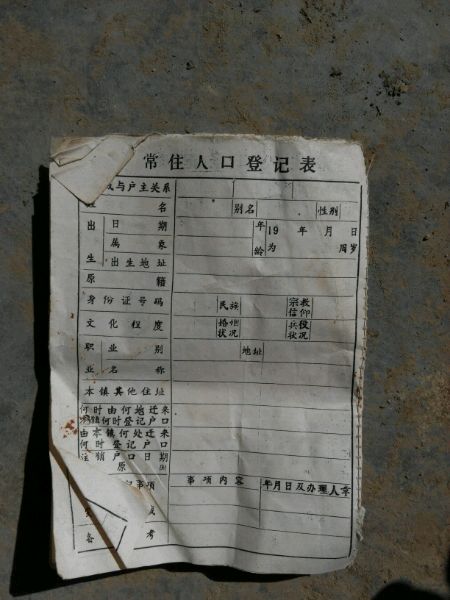 常住人口登记表
与户主关系
名 别名 性别
出 日期 年 19 年 月 日
属象 龄 为 周岁
生 出生地址
原籍
身份证号码 民族 宗教信仰
文化程度 婚姻状况 兵役状况
职 业别 地址
业 名称
本镇其他住址
何时由何地迁来
镇何时登记户口
由本镇何处迁来
何时登记户口
注销户口日期
原
事项 事项内容 年月日及办理人章
备考